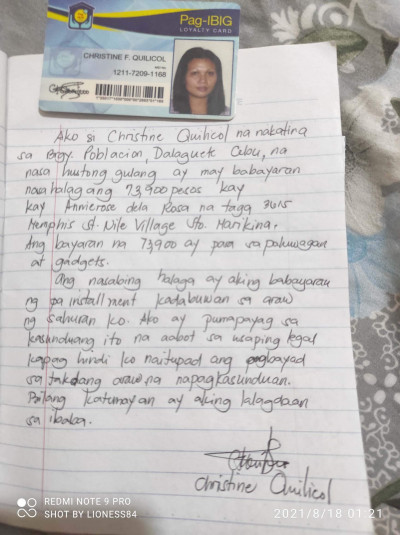 Pag-IBIG
LOYALTY CARD
CHRISTINE F. QUILICOL
1211-7209-1168
Ako si Christine Quilicol na nakatira
sa Brgy. Poblacion, Dalaguete Cebu, na
nasa hustong gulang ay may babayaran
nasa halagang 73,900 pesos kay
kay Annierose dela Rosa na taga 3415
Memphis St. Nile Village Sto. Marikina.
Ang bayaran na 73,900 ay para sa paluwagan
at gadgets.
Ang nasabing halaga ay aking babayaran
ng pa installment kadabuwan sa araw
ng sahuran ko. Ako ay pumapayag sa
kasunduang ito na aabot sa usaping legal
kapag hindi ko naitupad ang pagbayad
sa takdang araw na napagkasunduan.
Bilang katunayan ay aking lalagdaan
sa ibaba.
Christine Quilicol
REDMI NOTE 9 PRO
SHOT BY LIONESS84
2021/8/18 01:21